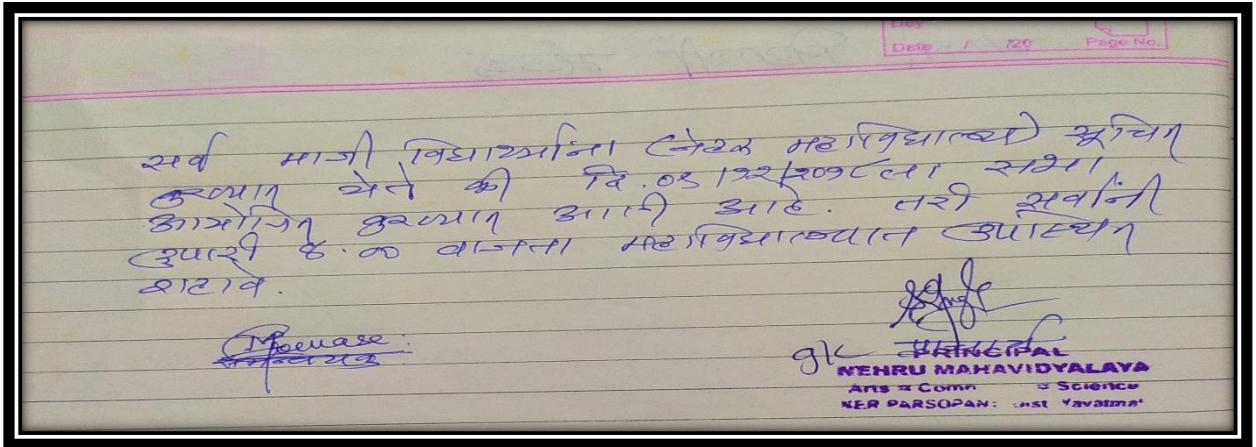 Date / /20 Page No.
सर्व माजी विद्यार्थ्यांना (नेहरू महाविद्यालय) सूचित
करण्यात येते की दि. 03/12/2018 ला सभा
आयोजित करण्यात आली आहे. तरी सर्वांनी
दुपारी 4.00 वाजता महाविद्यालयात उपस्थित
राहावे.
समन्वयक
PRINCIPAL
NEHRU MAHAVIDYALAYA
Arts Comm Science
NER PARSOPANT Dist Yavatmal